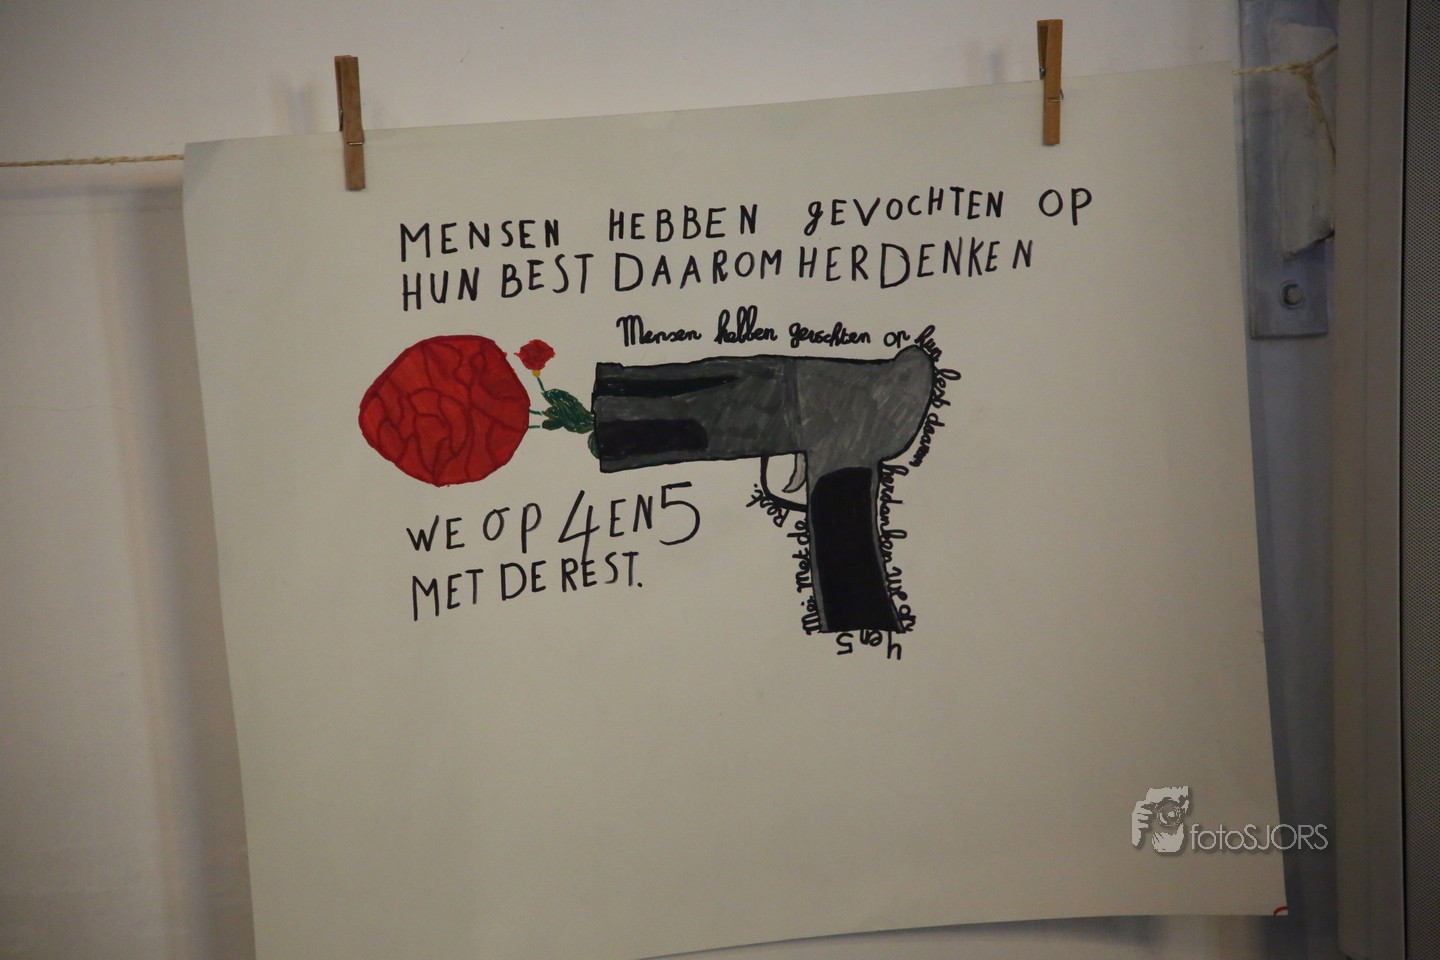 MENSEN HEBBEN gEVOCHTEN OP
HUN BEST DAAROM HERDENKEN
Mensen hebben gevochten op hun best daarom herdenken we op 4 en 5 Mei. Met de Rest.
WE OP 4 EN 5
MET DE REST.
fotoSJORS